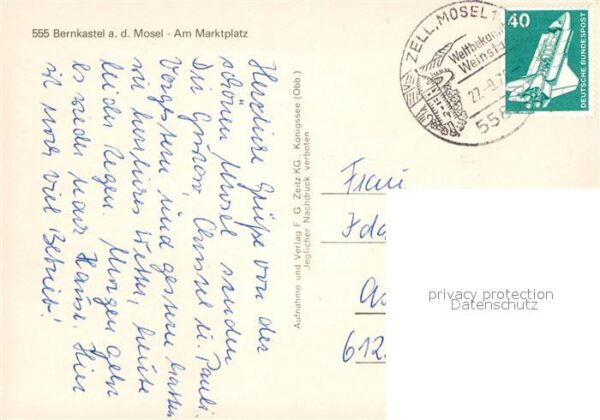 555 Bernkastel a. d. Mosel - Am Marktplatz
Herzliche Grüße von der
schönen Mosel senden
Die Großen, Chrissel u. Pauli.
Vorgestern und gestern hatten
wir herrliches Wetter, heute
leider Regen. Morgen geht
es wieder nach Hause. Hier
ist noch viel Betrieb!
Aufnahme und Verlag F. G. Zeitz KG., Königssee (Obb.)
Jeglicher Nachdruck verboten
ZELL, MOSEL 1
Weltbekannt
Weinsta
27.-9.7
555
40
DEUTSCHE BUNDESPOST
Frau
Ida
612
privacy protection
Datenschutz